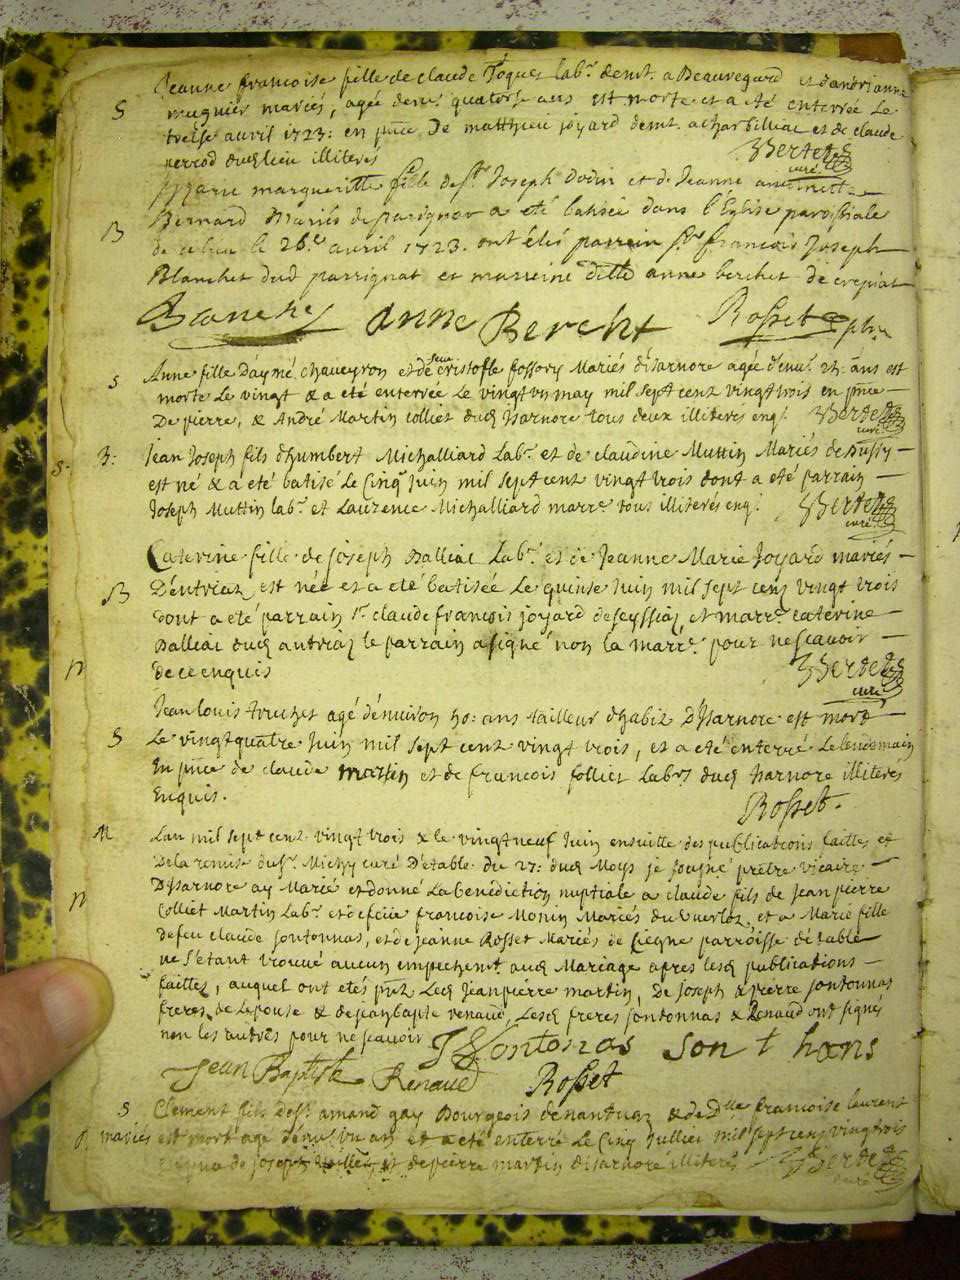 Jeanne francoise fille de claude labr. demt. a Beauvegard et dandrianne
S mugnier mariés, agée denv. quatorse ans est morte et a eté enterrée Le
treise avril 1723: en pnce. De matthieu joyard demt. a charbilliac et de claude
perrod dudi lieu illiteres
Berthet
curé
Marie margueritte fille de sr. Joseph Dodin et de Jeanne antoinette
B Bernard Mariés de a eté batisée dans l'Eglise paroissiale
de ce lieu le 26e avril 1723. ont étés parrain sr. francois Joseph
Blanchet dud parrignat et marreine dlle anne berchet de crepiat
Blanchet Anne Bercht Rosset
S Anne fille Daymé chaveyron et de feu cristofle fossory Mariés disarnore agée denv. 25: ans est
morte Le vingt & a eté enterrée Le vingt un may mil sept cent vingt trois en pnce
De pierre, & André Martin colliet dudi Isarnore tous deux illiteres enq.
Berthet
curé
B: Jean Joseph fils dhumbert Michalliard Labr. et de claudine Muttin Mariés de Bussy
est né & a eté batisé Le Cinq Juin mil sept cent vingt trois dont a eté parrain
Joseph Muttin labr. et Laurence Michalliard marre. tous illiterés enq.
Berthet
curé
Caterine fille de joseph Balliac Labr. et de Jeanne Marie Joyard mariés
B est née et a eté batisée Le quinse Juin mil sept cens vingt trois
dont a eté parrain sr. claude francois joyard de seyssiaz et marre. caterine
Balliac dudi le parrain a signé non la marre. pour ne scavoir
de ce enquis
Berthet
curé
Jean Louis truchet agé denviron 50: ans tailleur dhabit Disarnore est mort
S Le vingt quatre Juin mil sept cent vingt trois, et a eté enterré Le lendemain
En pnce de claude martin et de francois folliet Labrs dudi Isarnore illiterés
Enquis.
Rosset.
M Lan mil sept cent vingt trois & le vingt neuf Juin ensuitte des publications faittes et
De la remise du sr. Michy curé D'etable du 27: dudi Moys je soussigné prêtre vicaire
Disarnore ay Marié et donné La benediction nuptiale a claude fils de Jean pierre
Colliet Martin Labr. et de feüe francoise Monin Mariés du et a Marie fille
de feu claude sontonnas, et de jeanne Rosset Mariés de Ciegne parroisse detable
ne s'etant trouvé aucun empechemt. audi Mariage apres lesdi publications
faittes, auquel ont etés pnts Ledi Jean pierre martin, De Joseph & pierre sontonnas
freres de Lepouse & de jean baptiste renaud, Lesdi freres sontonnas & Renaud ont signés
non les autres pour ne scavoir
J Sontonas son t hans
Jean Baptiste Renaud Rosset
S Clement fils de sr. amand gay Bourgeois de nantua & de Dlle francoise laurent
mariés est mort agé un an et a eté enterré Le Cinq Juillet mil sept cens vingt trois
de joseph et de pierre martin disarnore illiterés
Berthet
curé